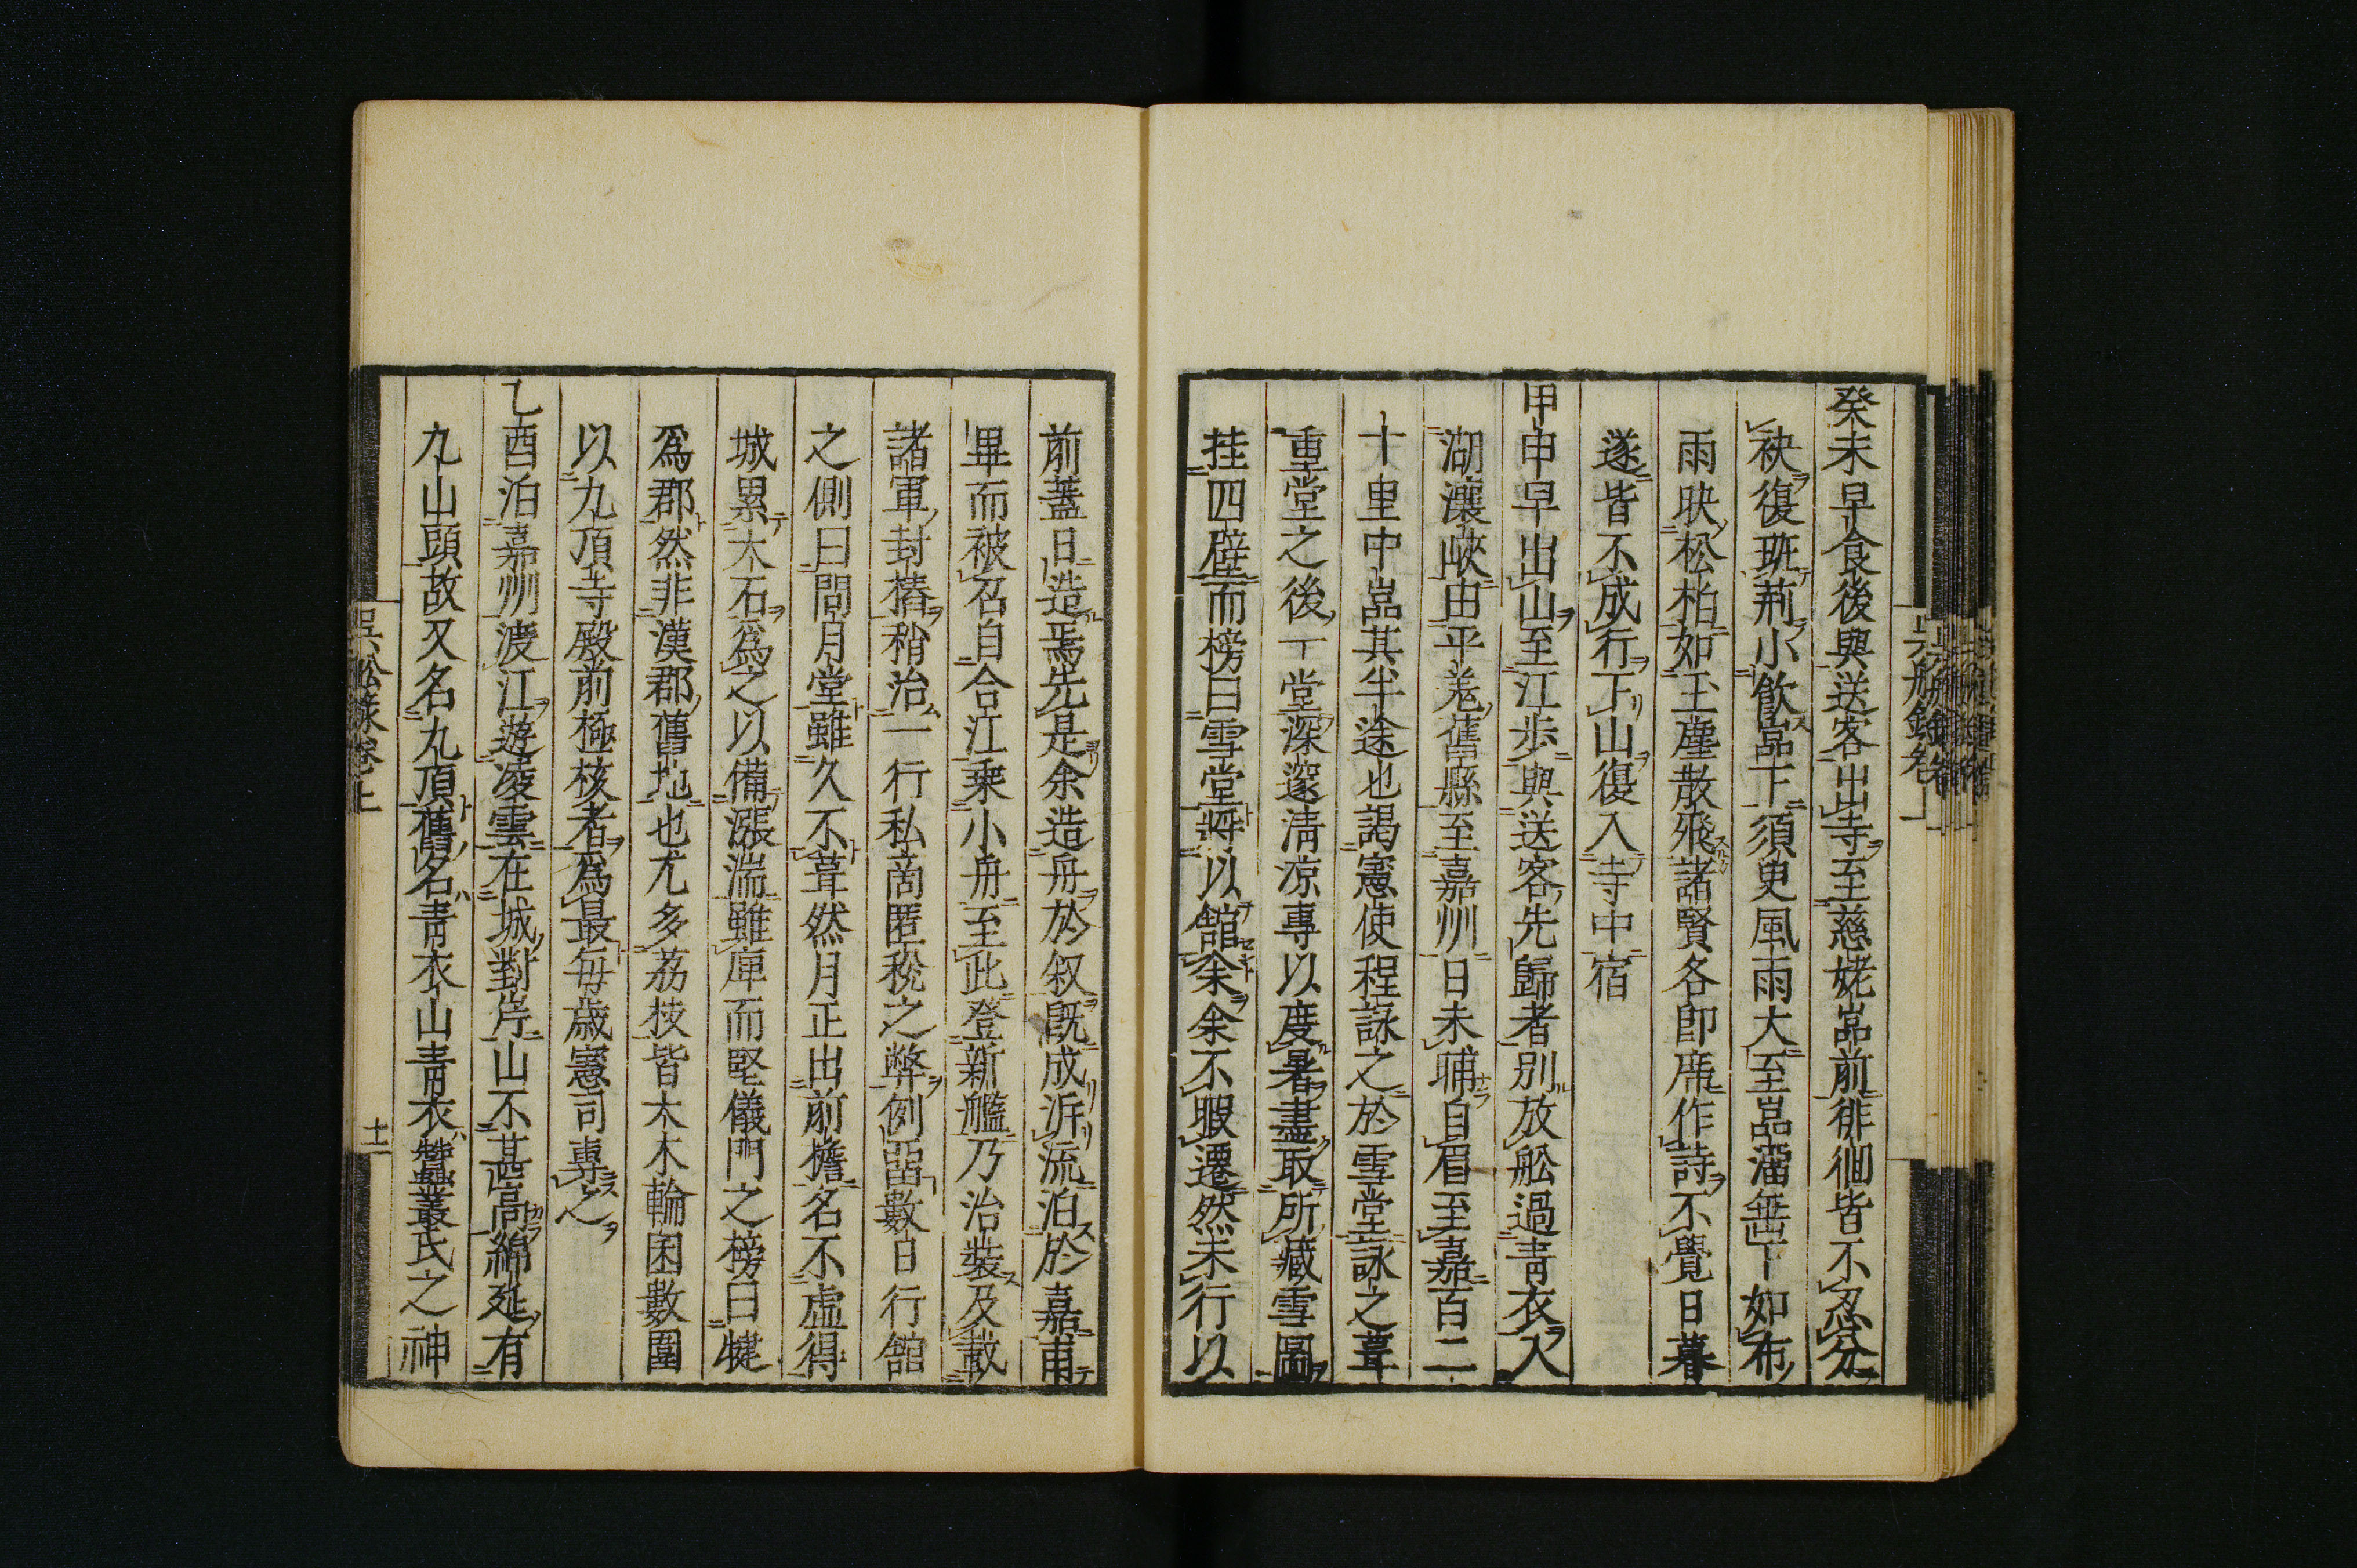 癸未早食後與送客出寺至慈姥嵓前徘徊皆不忍分
袂復班荊小飲嵓下須臾風雨大至嵓溜垂下如布
雨映松柏如玉塵散飛諸賢各即席作詩不覺日暮
遂皆不成行下山復入寺中宿
甲申早出山至江步與送客先歸者別放舩過青衣入
湖瀼峽由平羌舊縣至嘉州日未晡自眉至嘉百二
十里中嵓其半途也謁憲使程詠之於雪堂詠之葺
重堂之後一堂深邃清凉專以度暑盡取所藏雪圖
挂四壁而榜曰雪堂將以館余余不暇遷然未行以
前葢日造焉先是余造舟於叙既成泝流泊於嘉甫
畢而被召自合江乘小舟至此登新艦乃治裝及載
諸軍封樁稍治一行私啇匿稅之弊例畱數日行館
之側曰問月堂雖久不葺然月正出前檐名不虛得
城累木石爲之以備漲湍雖庳而堅儀門之榜曰犍
爲郡然非漢郡舊地也尤多荔枝皆大木輪囷數圍
以九頂寺殿前極核者爲最每歲憲司專之
乙酉泊嘉州渡江遊凌雲在城對岸山不甚高綿延有
九山頭故又名九頂舊名青衣山青衣蠶叢氏之神
吳舩錄卷上
十一